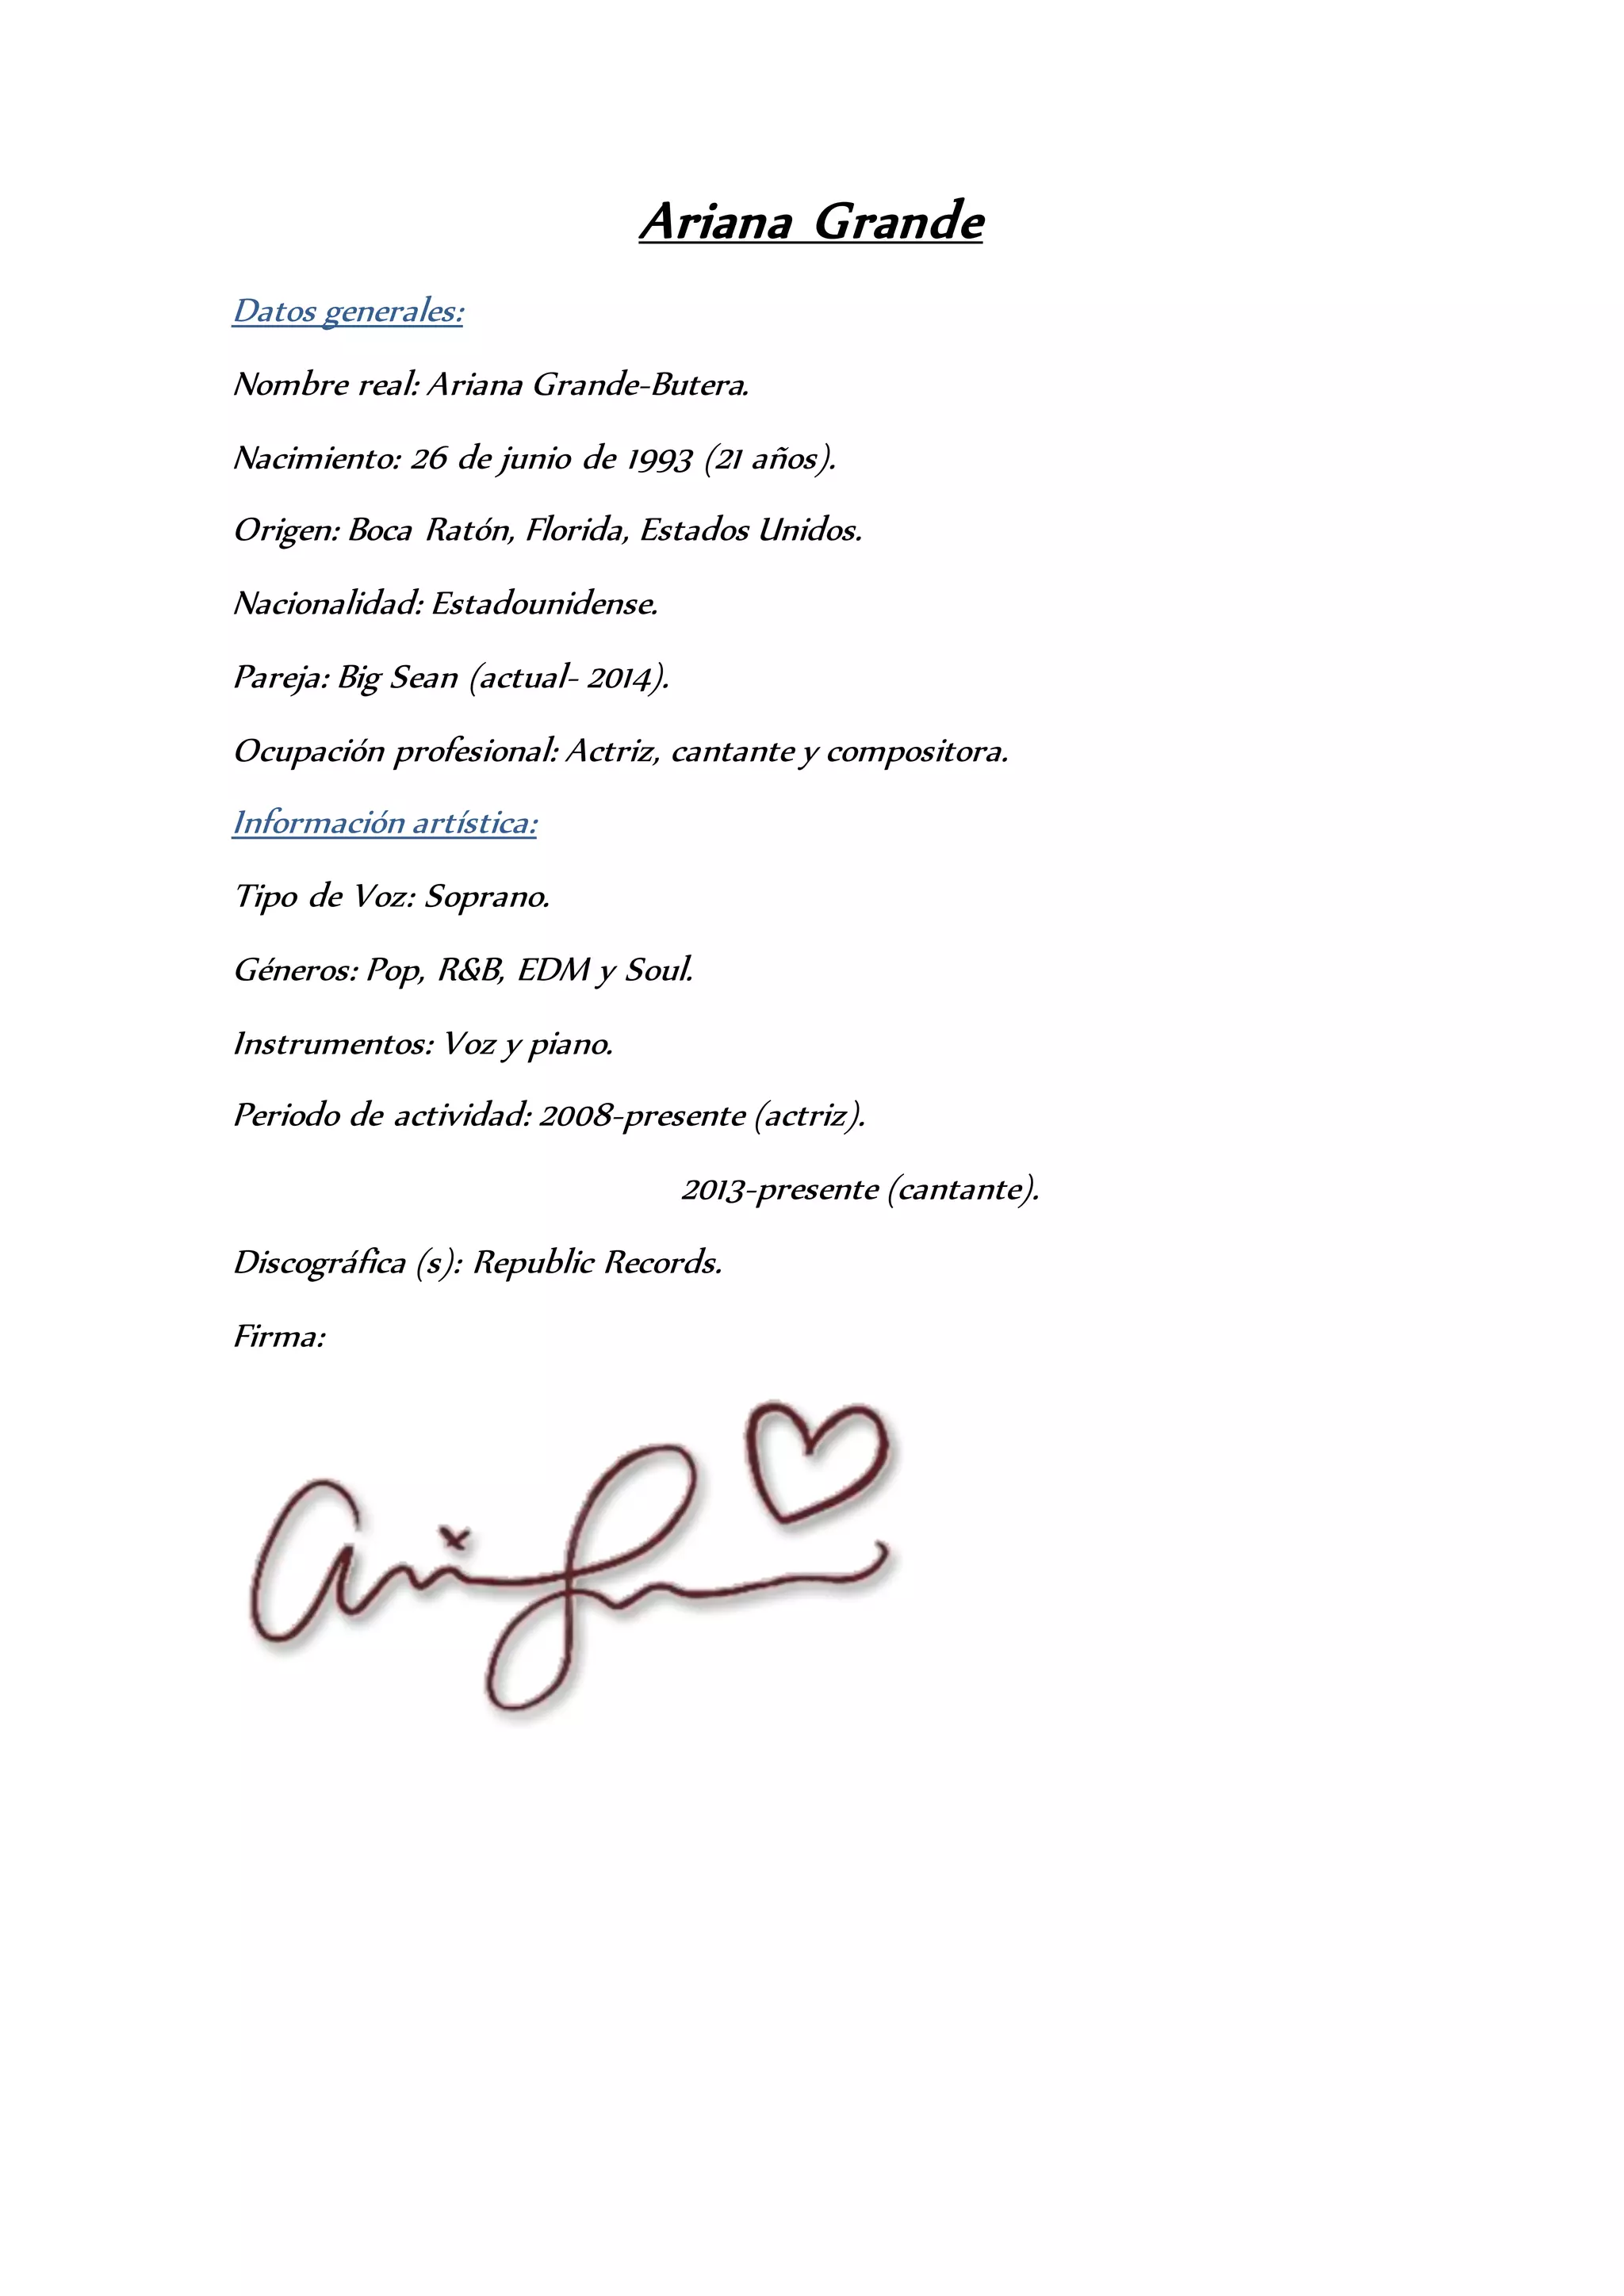 Ariana Grande
Datos generales:
Nombre real: Ariana Grande-Butera.
Nacimiento: 26 de junio de 1993 (21 años).
Origen: Boca Ratón, Florida, Estados Unidos.
Nacionalidad: Estadounidense.
Pareja: Big Sean (actual- 2014).
Ocupación profesional: Actriz, cantante y compositora.
Información artística:
Tipo de Voz: Soprano.
Géneros: Pop, R&B, EDM y Soul.
Instrumentos: Voz y piano.
Periodo de actividad: 2008-presente (actriz).
2013-presente (cantante).
Discográfica (s): Republic Records.
Firma: